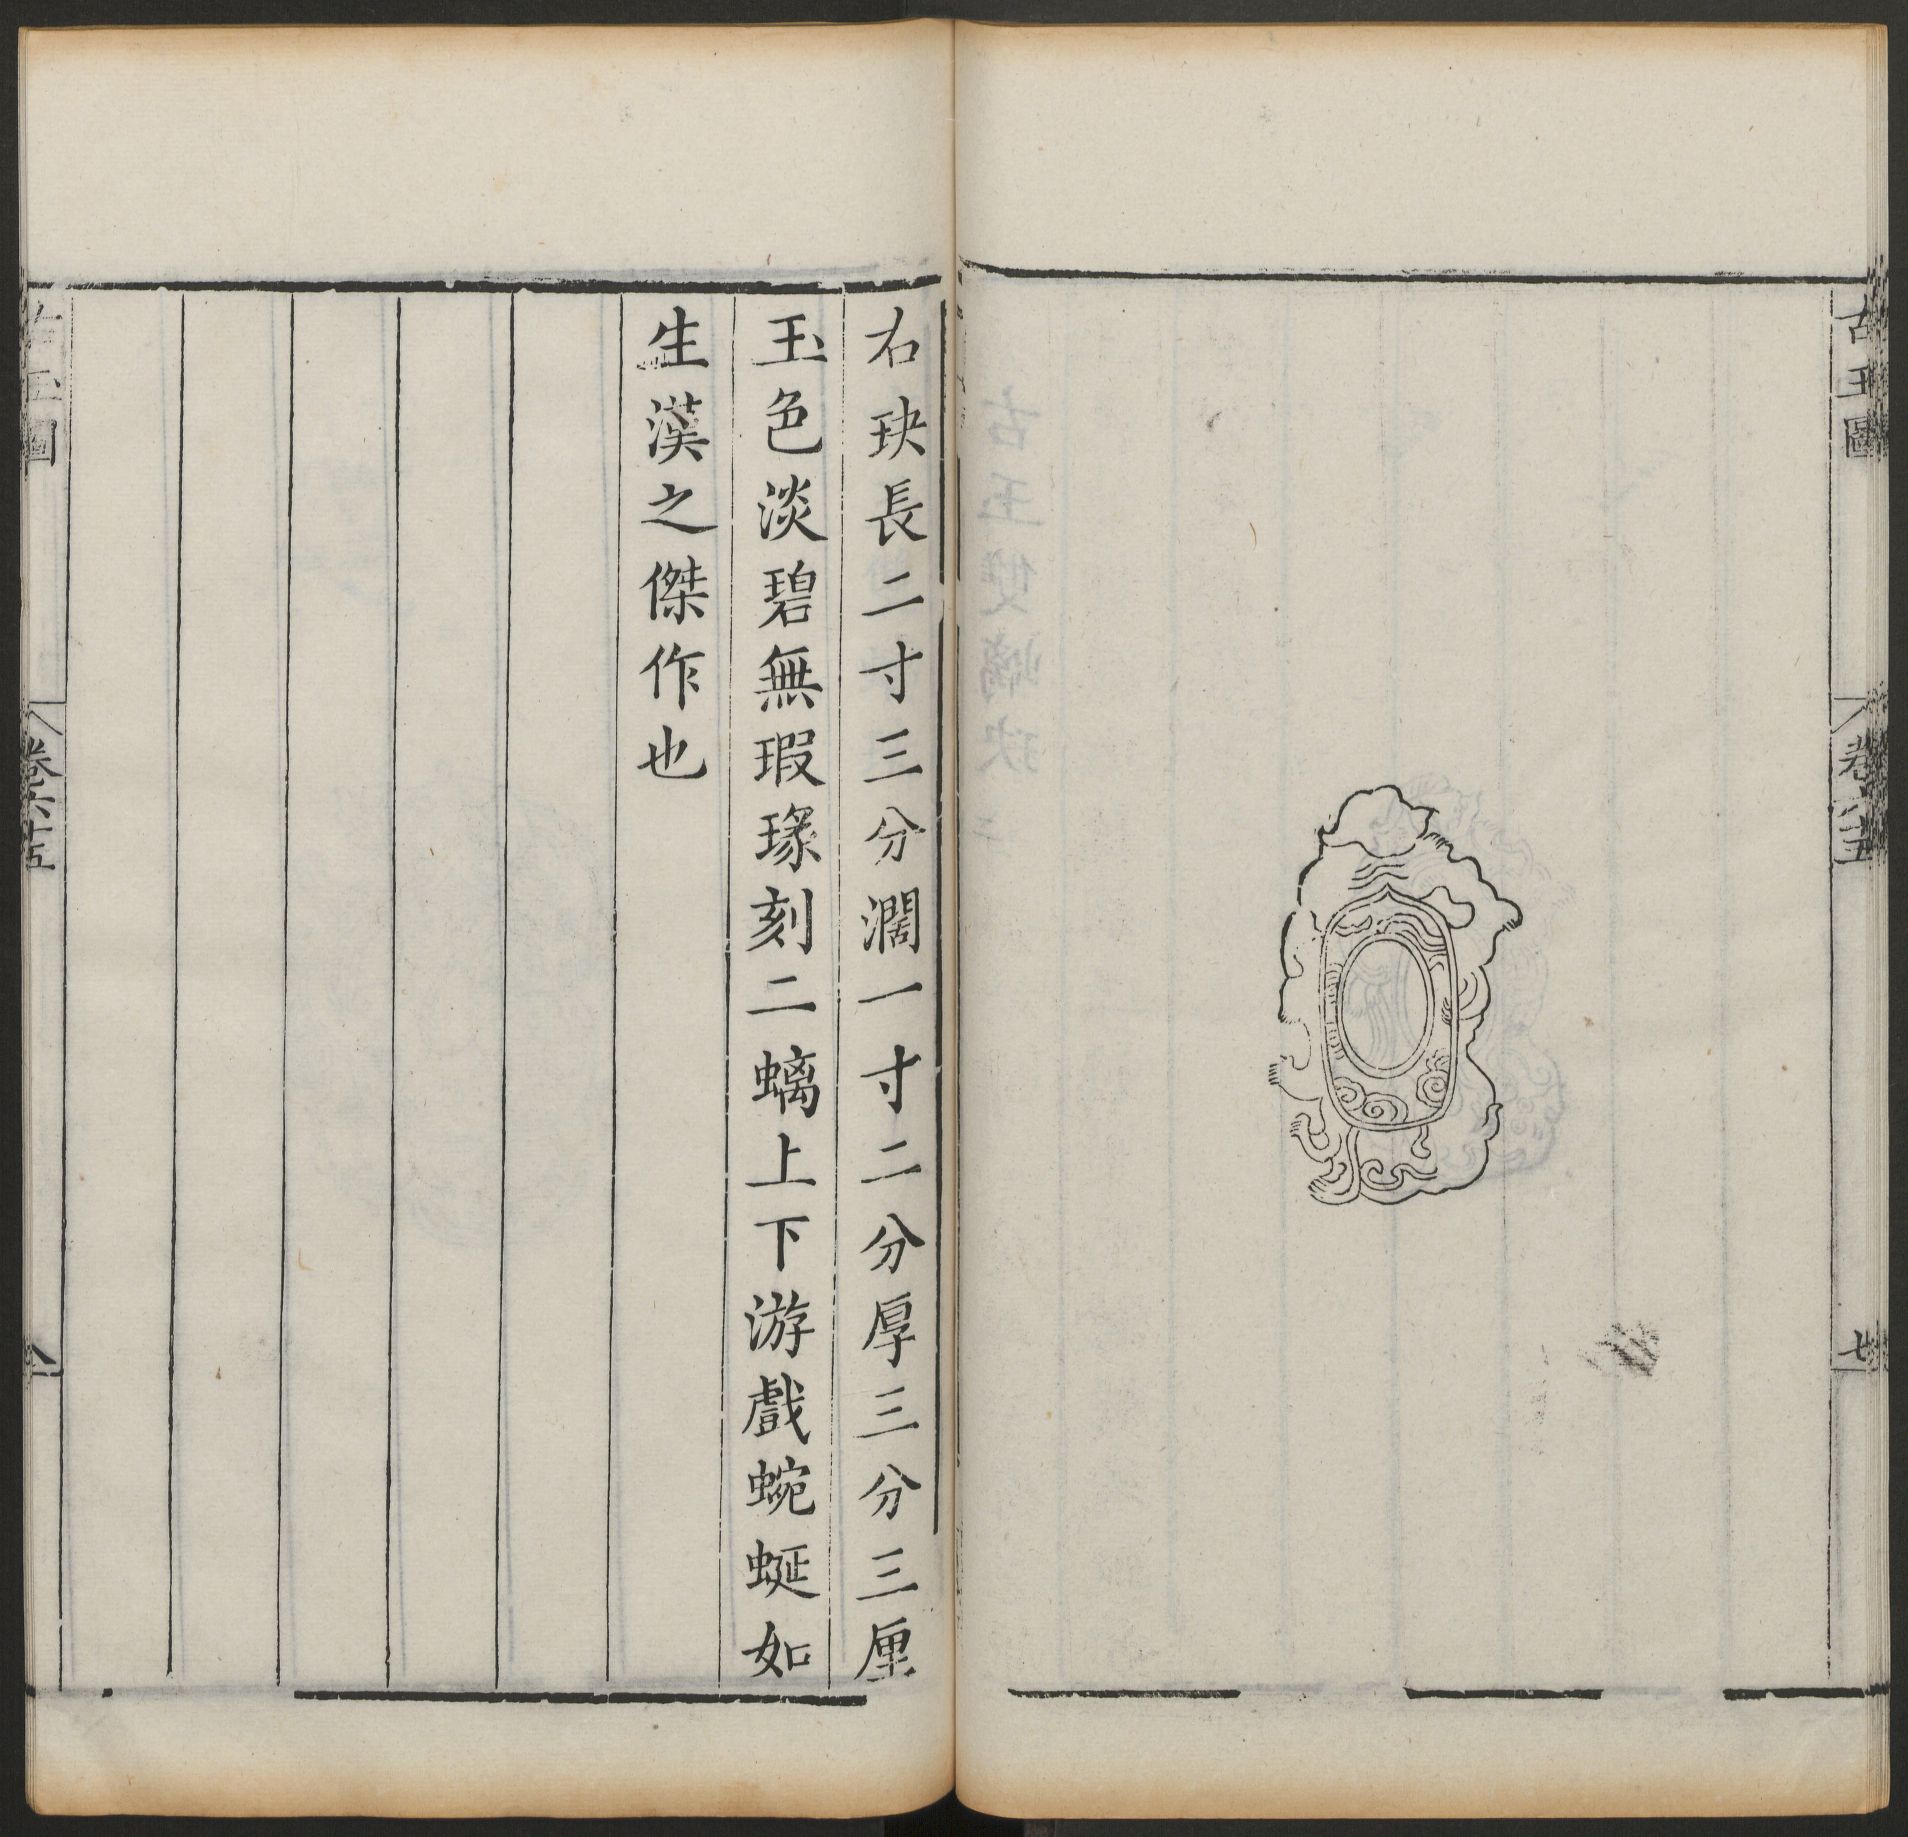 古玉圖
卷六十五
七
右玦長二寸三分濶一寸二分厚三分三厘
玉色淡碧無瑕瑑刻二螭上下游戲蜿蜒如
生漢之傑作也
古玉圖
卷六十五
八